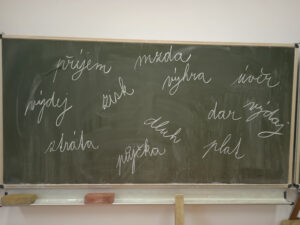 příjem mzda
výhra úvěr
výdej zisk
dar výdaj
dluh
ztráta půjčka plat